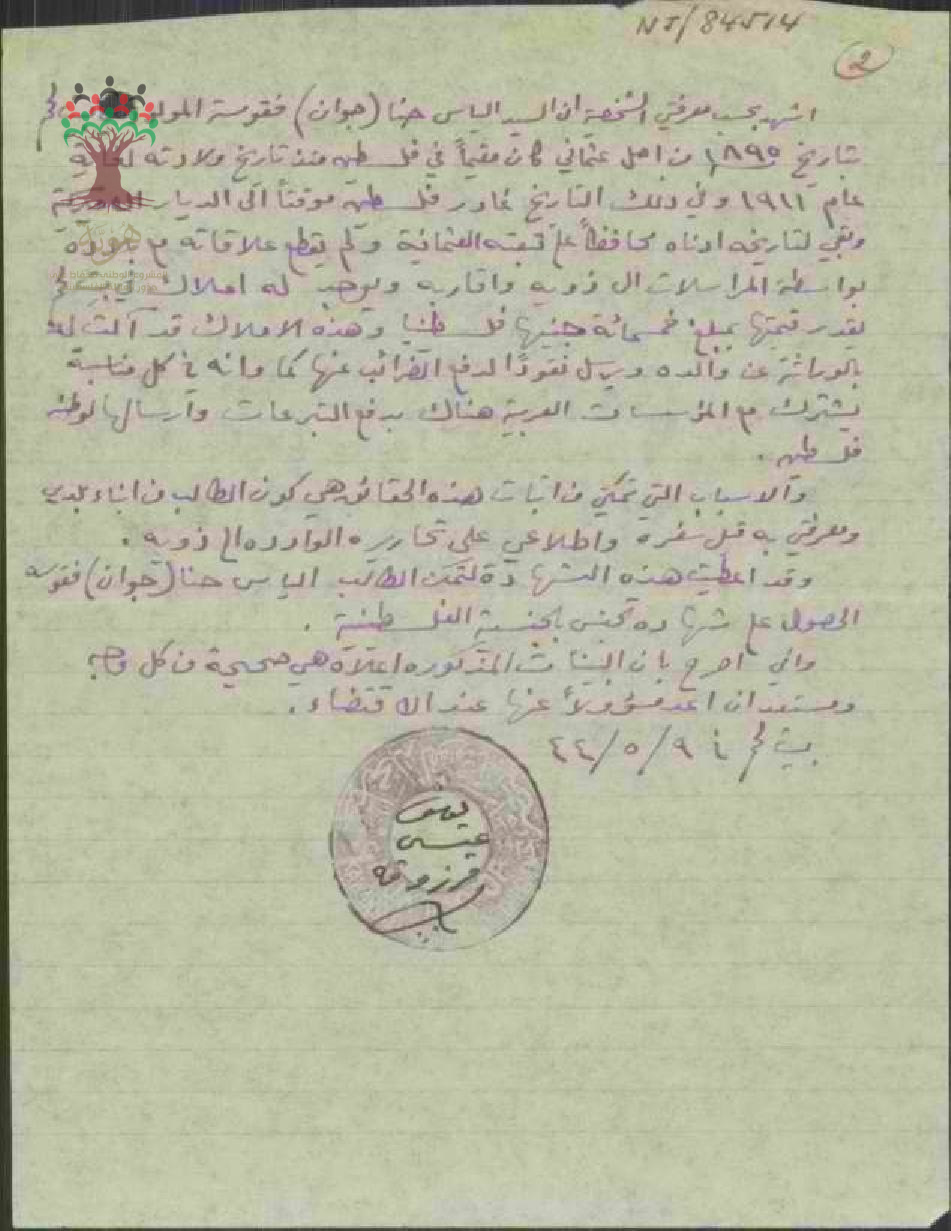 NT/84514
2
اشهد بحسب معرفتي الشخصية ان السيد الياس حنا (جوان) فقوسة المولود لحم
بتاريخ ١٨٩٥ من اصل عثماني كان مقيماً في فلسطين منذ تاريخ ولادته لغاية
عام ١٩١١ وفي ذلك التاريخ غادر فلسطين موقتاً الى الديار
وبقي لتاريخه ادناه محافظاً على تبعته العثمانية ولم يقطع علاقاته مع بلاده
بواسطة المراسلات الى ذويه واقاربه ويوجد له املاك في بيت لحم
تقدر قيمتها بمبلغ خمسمائة جنيها فلسطينيا وهذه الاملاك قد آلت له
بالوراثة عن والده ويرسل نقودًا لدفع الضرائب عنها كما وانه في كل مناسبة
يشترك مع المؤسسات العربية هناك بدفع التبرعات وارسالها لوطنه
فلسطين .
والاسباب التي تمكني من اثبات هذه الحقائق هي كون الطالب من ابناء بلدي
ومعرفتي به قبل سفره واطلاعي على تحاريره الوارده الى ذويه .
وقد اعطيت هذه الشهادة لتمكن الطالب الياس حنا (جوان) فقوسه
الحصول على شهاده تجنس بالجنسية الفلسطينية .
واني اصرح بان البينات المذكوره اعلاه هي صحيحة من كل وجه
ومستعد ان اعد مسؤولاً عنها عند الاقتضاء .
بيت لحم في ٩/٥/٤٤
عيسى